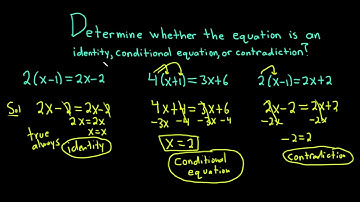 Determine whether the equation is an
identity, conditional equation, or contradiction?
2(x-1)=2x-2
4(x+1)=3x+6
2(x-1)=2x+2
Sol 2x-2=2x-2
2x=2x
x=x
true always
identity
4x+4=3x+6
-3x -4 -3x -4
x=2
Conditional
equation
2x-2=2x+2
-2x -2x
-2=2
Contradiction